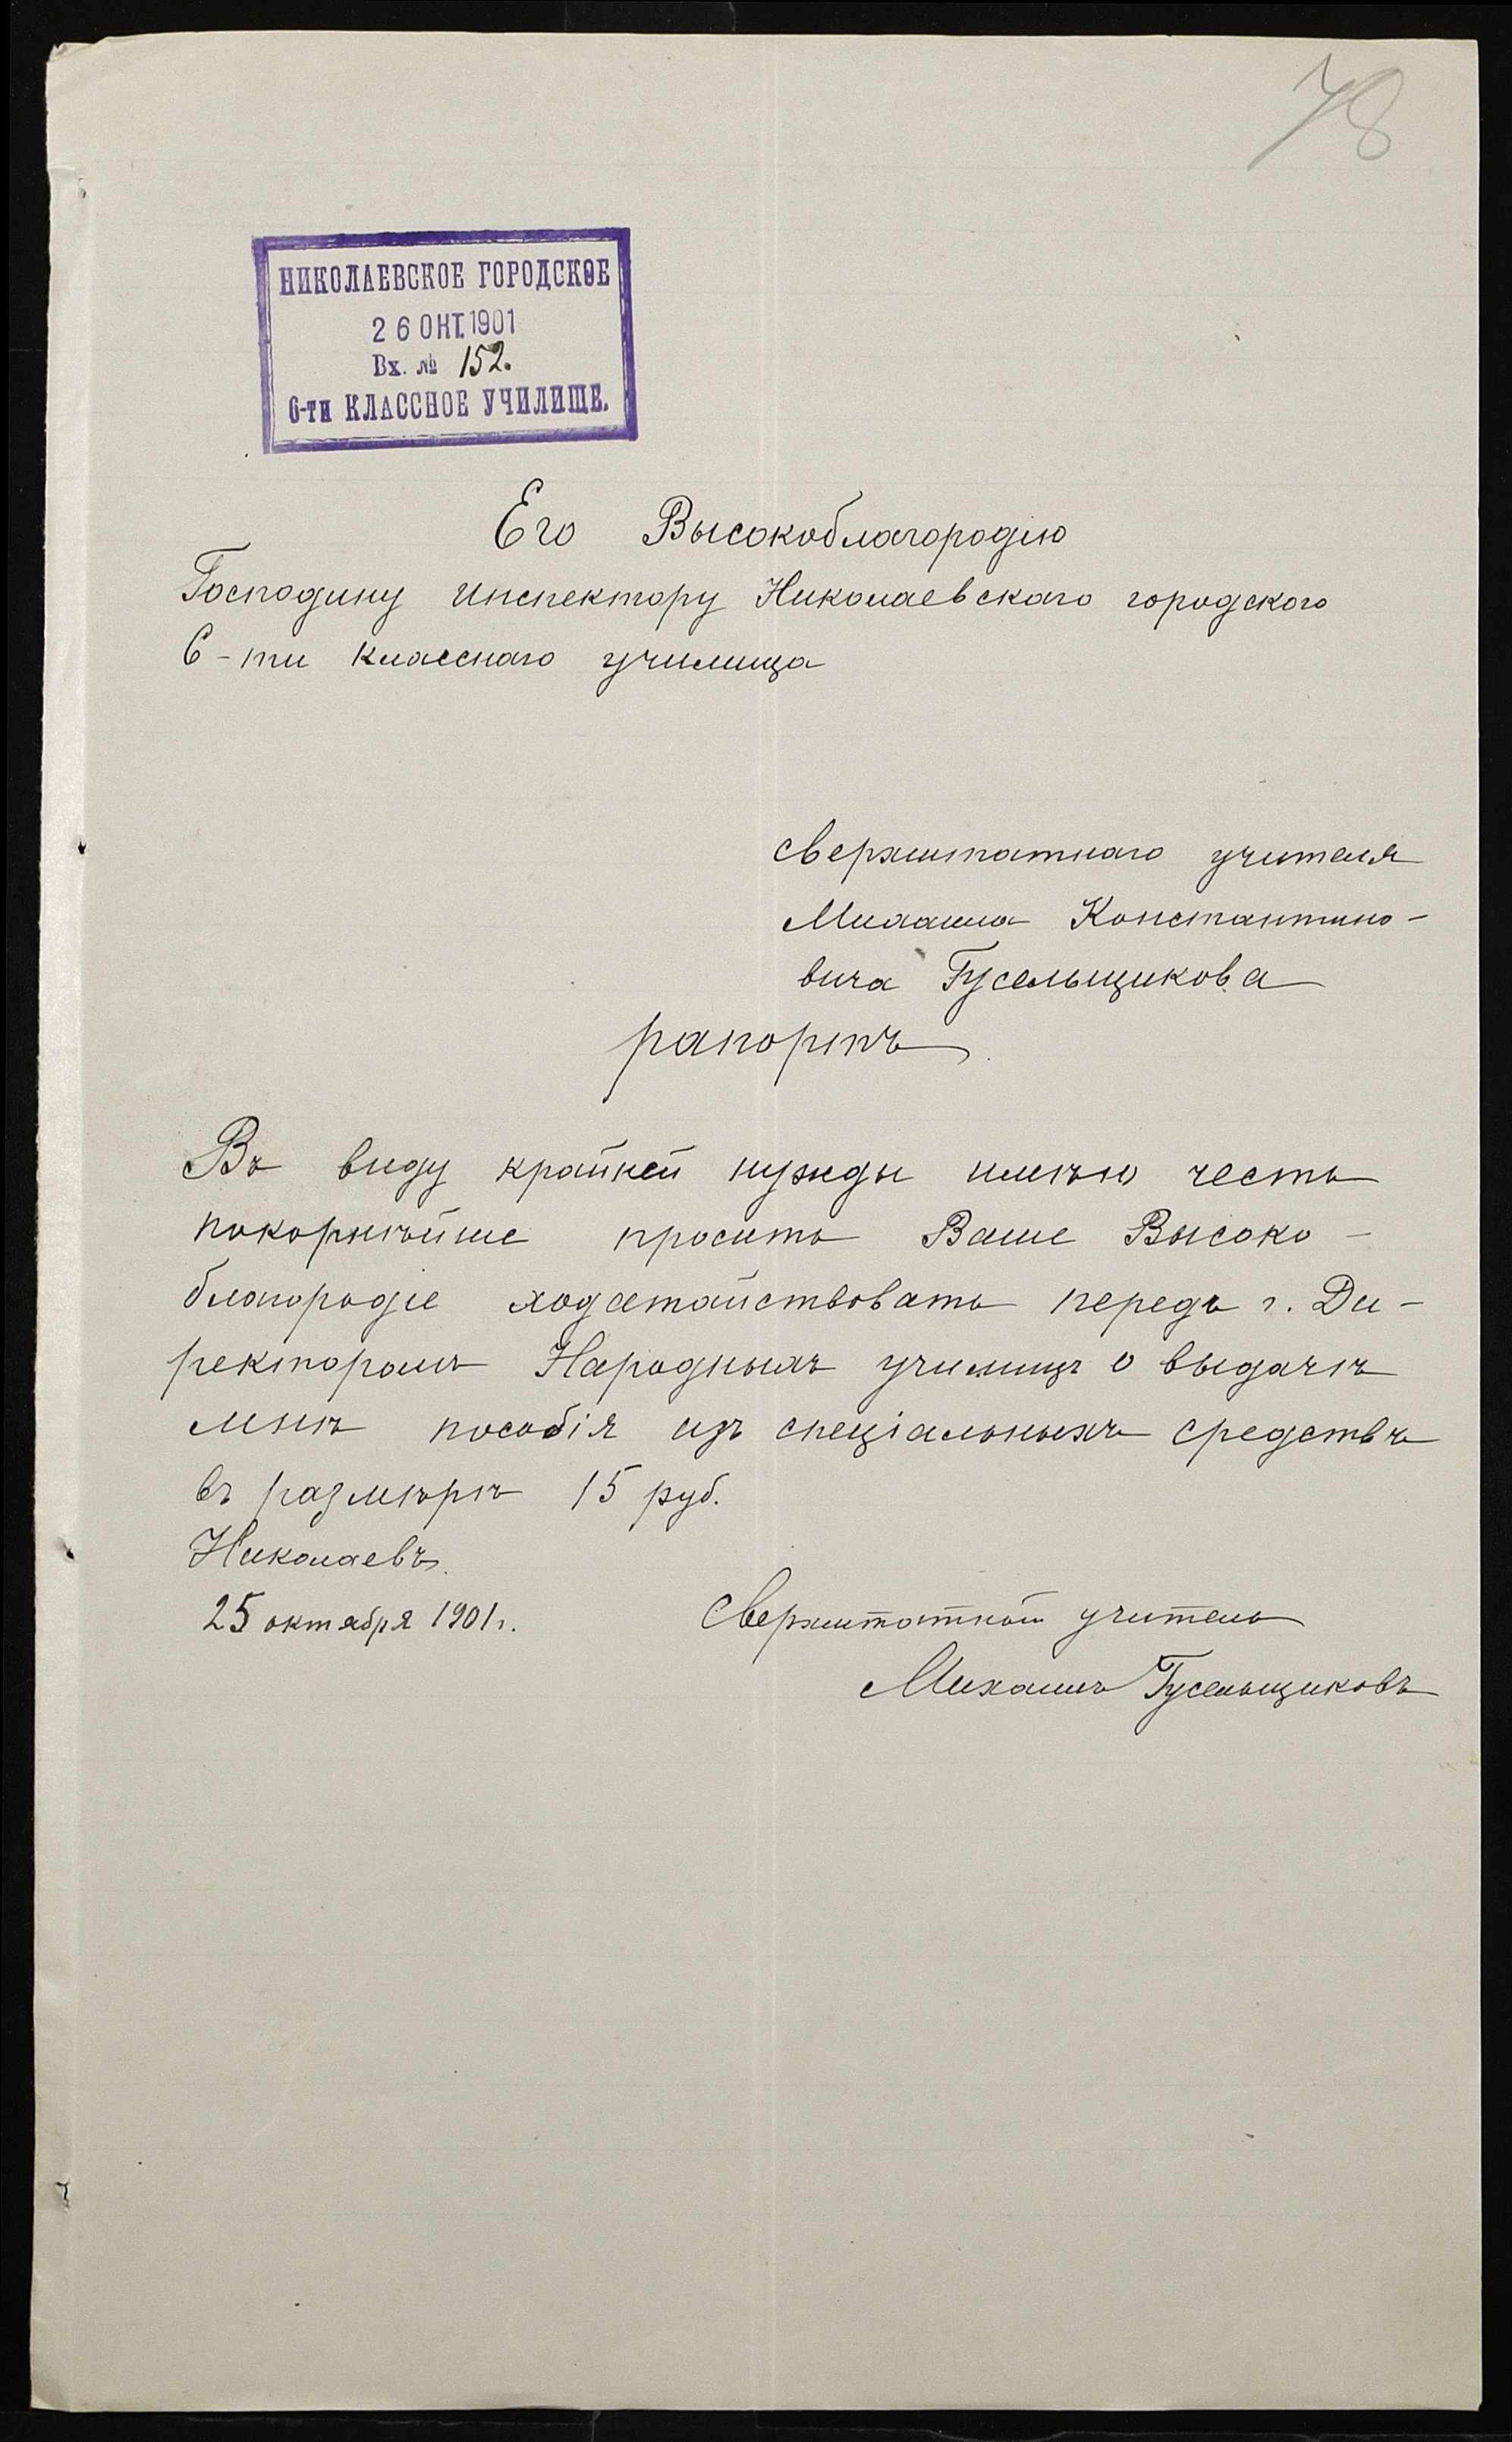 78
НИКОЛАЕВСКОЕ ГОРОДСКОЕ
26 ОКТ. 1901
Вх. № 152.
6-ти КЛАССНОЕ УЧИЛИЩЕ.
Его Высокоблагородію
Господину Инспектору Николаевскаго городского
6-ти класснаго училища
сверхштатнаго учителя
Михаила Константино-
вича Гусельщикова
рапортъ.
Въ виду крайней нужды имѣю честь
покорнѣйше просить Ваше Высоко-
благородіе ходатайствовать передъ г. Ди-
ректоромъ Народныхъ училищъ о выдачѣ
мнѣ пособія изъ спеціальныхъ средствъ
въ размѣрѣ 15 руб.
Николаевъ.
25 октября 1901 г.
Сверхштатный учитель
Михаилъ Гусельщиковъ